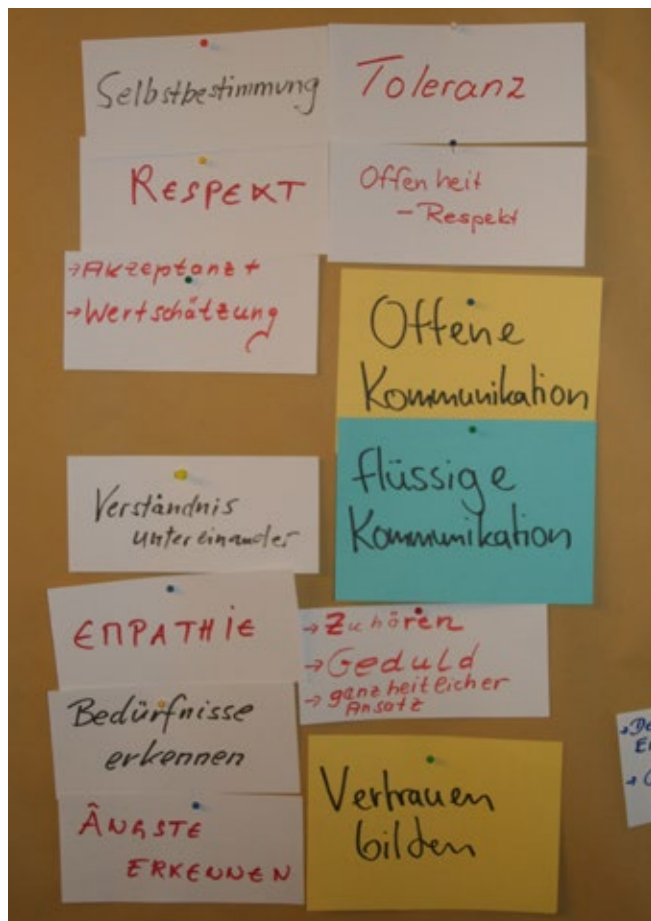 Selbstbestimmung
Toleranz
RESPEKT
Offenheit
- Respekt
→Akzeptanz +
→Wertschätzung
Offene
Kommunikation
flüssige
Kommunikation
Verständnis
untereinander
EMPATHIE
→Zuhören
→Geduld
→ganzheitlicher
Ansatz
Bedürfnisse
erkennen
Vertrauen
bilden
ÄNGSTE
ERKENNEN